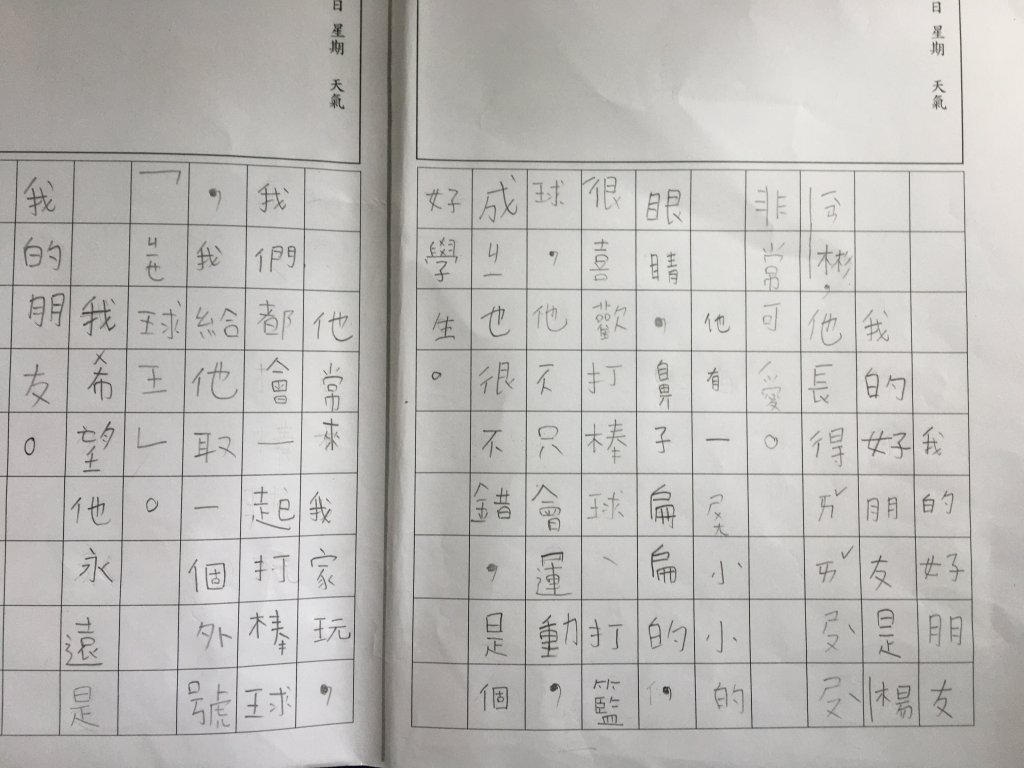 日 星期 天氣
我的好朋友
我的好朋友是楊
彬，他長得ㄞˇㄞˇㄆㄤˋㄆㄤˋ
非常可愛。
他有一ㄕㄨㄤ小小的
眼睛，鼻子扁扁的，
很喜歡打棒球、打籃
球，他不只會運動，
成ㄐㄧ也很不錯，是個
好學生。
日 星期 天氣
他常來我家玩，
我們都會一起打棒球
，我給他取一個外號
「ㄐㄧㄝ球王」。
我希望他永遠是
我的朋友。